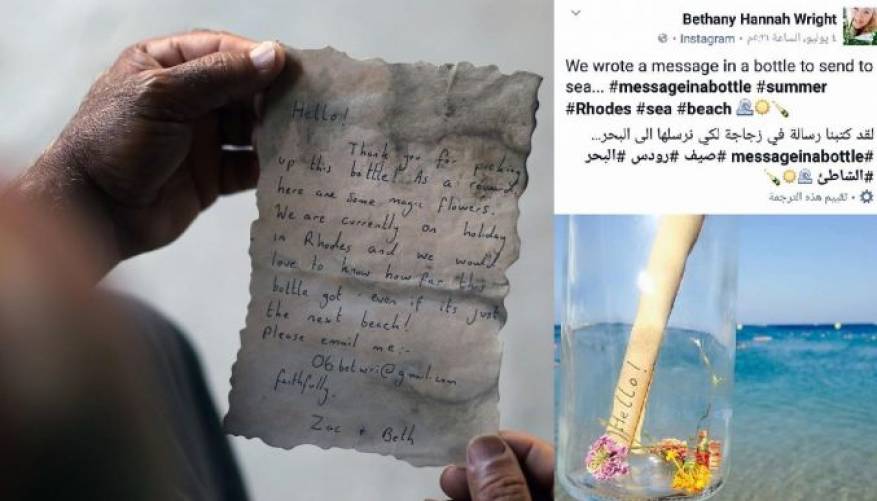 Hello!
Thank you for picking
up this bottle! As a reward,
here are some magic flowers.
We are currently on holiday
in Rhodes and we would
love to know how far this
bottle got - even if its just
the next beach!
Please email me:-
06betwri@gmail.com
faithfully,
Zac + Beth
Bethany Hannah Wright
٤ يوليو، الساعة ٥:٢٦م • Instagram •
We wrote a message in a bottle to send to
sea... #messageinabottle #summer
#Rhodes #sea #beach 🌊☀️🍾
لقد كتبنا رسالة في زجاجة لكي نرسلها الى البحر...
#messageinabottle #صيف #رودس #البحر
#الشاطئ 🌊☀️🍾
• تقييم هذه الترجمة
Hello!